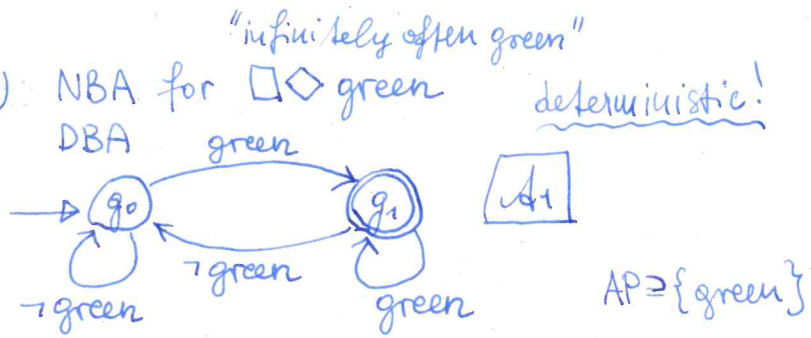 "infinitely often green"
) NBA for □◇ green
deterministic!
DBA
green
q₀
q₁
A₁
¬green
¬green
green
AP⊇{green}